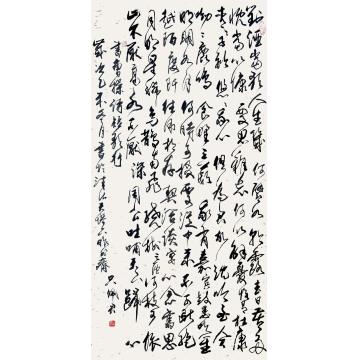 對酒當歌人生幾何譬如朝露去日苦多
慨當以慷憂思難忘何以解憂惟有杜康
青青子衿悠悠我心但為君故沉吟至今
呦呦鹿鳴食野之蘋我有嘉賓鼓瑟吹笙
明明如月何時可掇憂從中來不可斷絕
越陌度阡枉用相存契闊談宴心念舊恩
月明星稀烏鵲南飛繞樹三匝何枝可依
山不厭高水不厭深周公吐哺天下歸心
書曹操詩短歌行
歲次乙未冬月書於